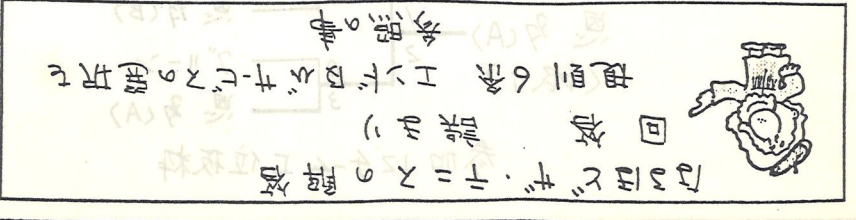 なるほど ザ・テニスの解答
回 答 誤まり
規則 6条 エンド及びサービスの選択を
参照の事